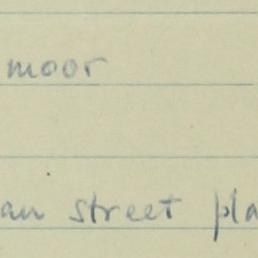 moor
an street pla